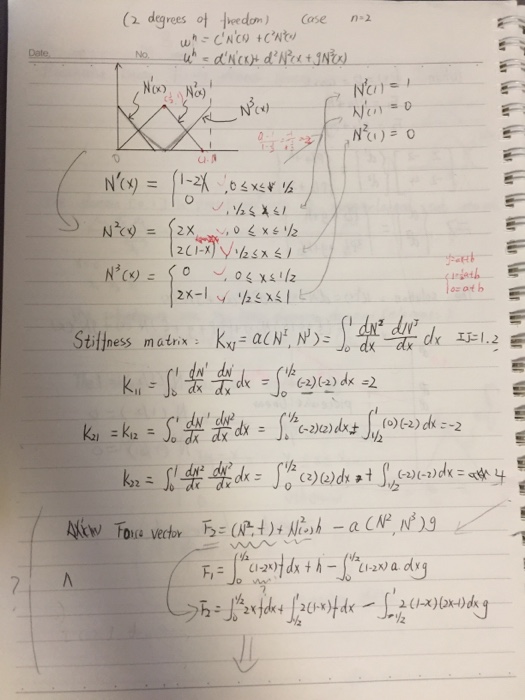 (2 degrees of freedom) case n=2
wʰ = C¹N¹(x) + C²N²(x)
Date. No. uʰ = d¹N¹(x) + d²N²(x) + gN³(x)
N¹(x) N²(x) N³(x)
N³(1) = 1
N¹(1) = 0
N²(1) = 0
N¹(x) = { 1-2x , 0 ≤ x ≤ 1/2
0 , 1/2 ≤ x ≤ 1
N²(x) = { 2x , 0 ≤ x ≤ 1/2
2(1-x) 1/2 ≤ x ≤ 1
N³(x) = { 0 0 ≤ x ≤ 1/2
2x-1 1/2 ≤ x ≤ 1
1=a+b
0=a+b
Stiffness matrix : K_IJ = a(Nᴵ, Nᴶ) = ∫₀¹ dNᴵ/dx dNᴶ/dx dx IJ=1.2
K₁₁ = ∫₀¹ dN¹/dx dN¹/dx dx = ∫₀^(1/2) (-2)(-2) dx = 2
K₂₁ = K₁₂ = ∫₀¹ dN¹/dx dN²/dx dx = ∫₀^(1/2) (-2)(2) dx + ∫_(1/2)^1 (0)(-2) dx = -2
K₂₂ = ∫₀¹ dN²/dx dN²/dx dx = ∫₀^(1/2) (2)(2) dx + ∫_(1/2)^1 (-2)(-2) dx = 4
Force vector F₂ = (N², f) + N²(0)h - a(N², N³)g
F₁ = ∫₀^(1/2) (1-2x) f dx + h - ∫₀^(1/2) (1-2x) a dx g
?
?
F₂ = ∫₀^(1/2) 2x f dx + ∫_(1/2)^1 2(1-x) f dx - ∫_(1/2)^1 2(1-x)(2x-1) dx g